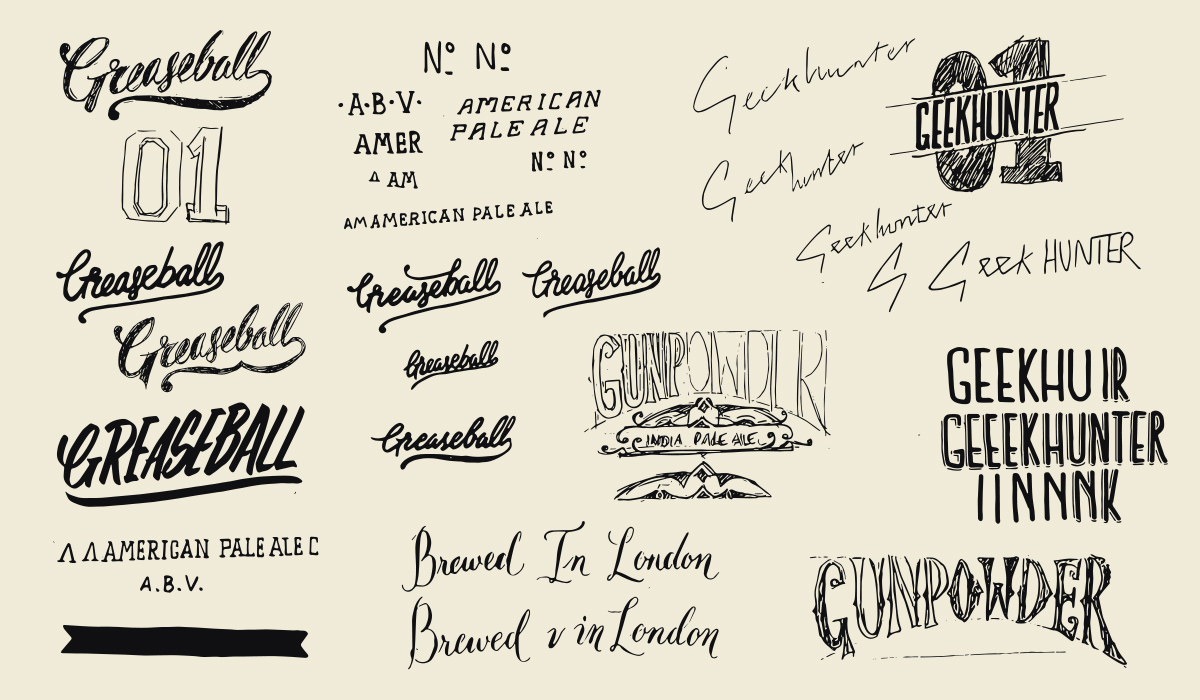 Greaseball
01
Greaseball
Greaseball
GREASEBALL
Λ Λ AMERICAN PALE ALE C
A.B.V.
Nº Nº
·A·B·V·
AMER
Δ AM
AMERICAN
PALE ALE
Nº Nº
AM AMERICAN PALE ALE
Greaseball
Greaseball
Greaseball
Greaseball
GUNPOWDER
INDIA PALE ALE
Brewed In London
Brewed v in London
Geekhunter
01
GEEKHUNTER
Geek
hunter
Geekhunter
G Geek HUNTER
GEEKHU IR
GEEEKHUNTER
IINNNK
GUNPOWDER